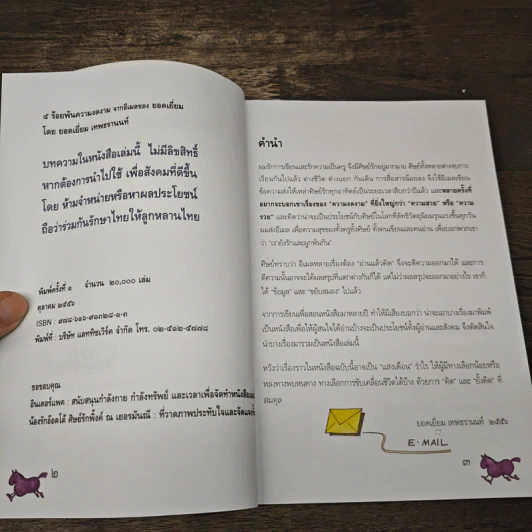 ๔ ร้อยพันความงดงาม จากอีเมลของ ยอดเยี่ยม
โดย ยอดเยี่ยม เทพธรานนท์
บทความในหนังสือเล่มนี้ ไม่มีลิขสิทธิ์
หากต้องการนำไปใช้ เพื่อสังคมที่ดีขึ้น
โดย ห้ามจำหน่ายหรือหาผลประโยชน์
ถือว่าร่วมกันรักษาไทยให้ลูกหลานไทย
พิมพ์ครั้งที่ ๑ จำนวน ๒๐,๐๐๐ เล่ม
ตุลาคม ๒๕๕๖
ISBN : ๙๗๘-๖๑๖-๙๑๓๒๘-๑-๓
พิมพ์ที่ : บริษัท แลททิซเวิร์ค จำกัด โทร. ๐๒-๕๑๒-๕๗๗๘
ขอขอบคุณ
อินเตอร์แพค : สนับสนุนกำลังกาย กำลังทรัพย์ และเวลาเพื่อจัดทำหนังสือ
น้องรักอ๊อตโต้ ศิษย์รักพิ้งค์ ณ เยอรมันณี : ที่วาดภาพประทับใจและ
๒
คำนำ
ผมรักการเขียนและรักความเป็นครู จึงมีศิษย์รักอยู่มากมาย ศิษย์ทั้งหลายต่างจบการ
เรียนกันไปแล้ว ต่างชีวิต ต่างแยก กันเดิน การสื่อสารน้อยลง จึงใช้อีเมลเขียน
ข้อความส่งให้เหล่าศิษย์รักทุกอาทิตย์เป็นระยะเวลาสิบกว่าปีแล้ว และหลายครั้งที่
อยากจะบอกเขาเรื่องของ "ความงดงาม" ที่ยิ่งใหญ่กว่า "ความสวย" หรือ "ความ
รวย" และคิดว่าน่าจะเป็นประโยชน์กับศิษย์ในโลกที่ลัทธิวัตถุนิยมรุนแรงขึ้นทุกวัน
ผมส่งอีเมล เพื่อความสุขของทั้งครูทั้งศิษย์ ทั้งคนเขียนและคนอ่าน เพื่อบอกพวกเขา
ว่า "เรายังรักและผูกพันกัน"
ศิษย์ทราบว่า อีเมลหลายเรื่องต้อง "อ่านแล้วคิด" จึงจะตีความออกมาได้ และการ
ตีความนั้นอาจจะได้ผลสรุปที่แตกต่างกันก็ได้ แต่ไม่ว่าผลสรุปจะออกมาอย่างไร เขาก็
ได้ "ข้อมูล" และ "ขยับสมอง" ไปแล้ว
จากการเขียนเพื่อสอนหนังสือมาหลายปี ทำให้มีเสียงบอกว่า น่าจะเอาบางเรื่องมาพิมพ์
เป็นหนังสือเพื่อให้ผู้สนใจได้อ่านบ้างจะเป็นประโยชน์ทั้งผู้อ่านและสังคม จึงตัดสินใจ
นำบางเรื่องมารวมเป็นหนังสือเล่มนี้
หวังว่าเรื่องราวในหนังสือฉบับนี้อาจเป็น "แสงเตือน" รำไร ให้ผู้มีทางเลือกน้อยหรือ
หลงทางพบหนทาง ทางเลือกการขับเคลื่อนชีวิตได้บ้าง ด้วยการ "คิด" และ "ยั้งคิด" ที่
สมดุล
ยอดเยี่ยม เทพธรานนท์ ๒๕๕๖
E-MAIL
๓